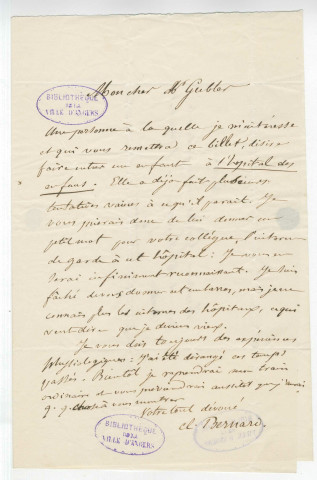 Mon cher Mr Gubler
BIBLIOTHÈQUE
DE LA
VILLE D'ANGERS
Une personne à la quelle je m'intéresse
et qui vous remettra ce billet, désire
faire entrer un enfant à l'hopital des
enfans. Elle a déjà fait plusieurs
tentatives vaines à ce qu'il parait. Je
vous prierais donc de lui donner un
petit mot pour votre collègue, l'interne
de garde à cet hôpital; Je vous en
serai infiniment reconnaissant. Je suis
fâché de vous donner cet embarras, mais je ne
connais plus les internes des hôpitaux, ce qui
veut dire que je deviens vieux.
Je vous dois toujours des expériences
physiologiques; J'ai été dérangé ces temps
passés. Bientôt je reprendrai mon train
ordinaire et vous préviendrai aussitot que j'aurai
q.q. chose à vous montrer
Votre tout dévoué
cl. Bernard.
BIBLIOTHÈQUE
DE LA
VILLE D'ANGERS